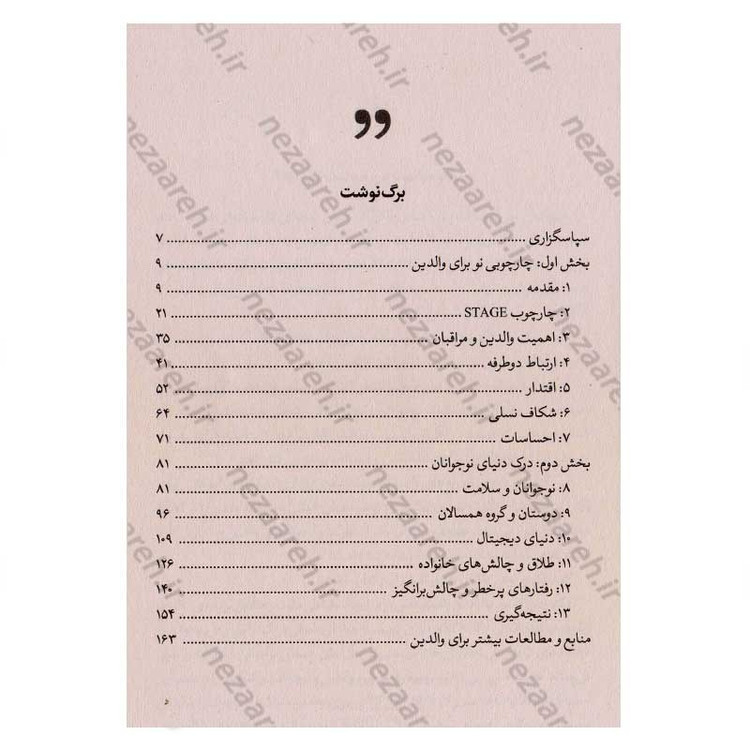 برگ‌نوشت
سپاسگزاری ........ ۷
بخش اول: چارچوبی نو برای والدین ........ ۹
۱: مقدمه ........ ۹
۲: چارچوب STAGE ........ ۲۱
۳: اهمیت والدین و مراقبان ........ ۳۵
۴: ارتباط دوطرفه ........ ۴۱
۵: اقتدار ........ ۵۲
۶: شکاف نسلی ........ ۶۴
۷: احساسات ........ ۷۱
بخش دوم: درک دنیای نوجوانان ........ ۸۱
۸: نوجوانان و سلامت ........ ۸۱
۹: دوستان و گروه همسالان ........ ۹۶
۱۰: دنیای دیجیتال ........ ۱۰۹
۱۱: طلاق و چالش‌های خانواده ........ ۱۲۶
۱۲: رفتارهای پرخطر و چالش‌برانگیز ........ ۱۴۰
۱۳: نتیجه‌گیری ........ ۱۵۴
منابع و مطالعات بیشتر برای والدین ........ ۱۶۳
nezaareh.ir